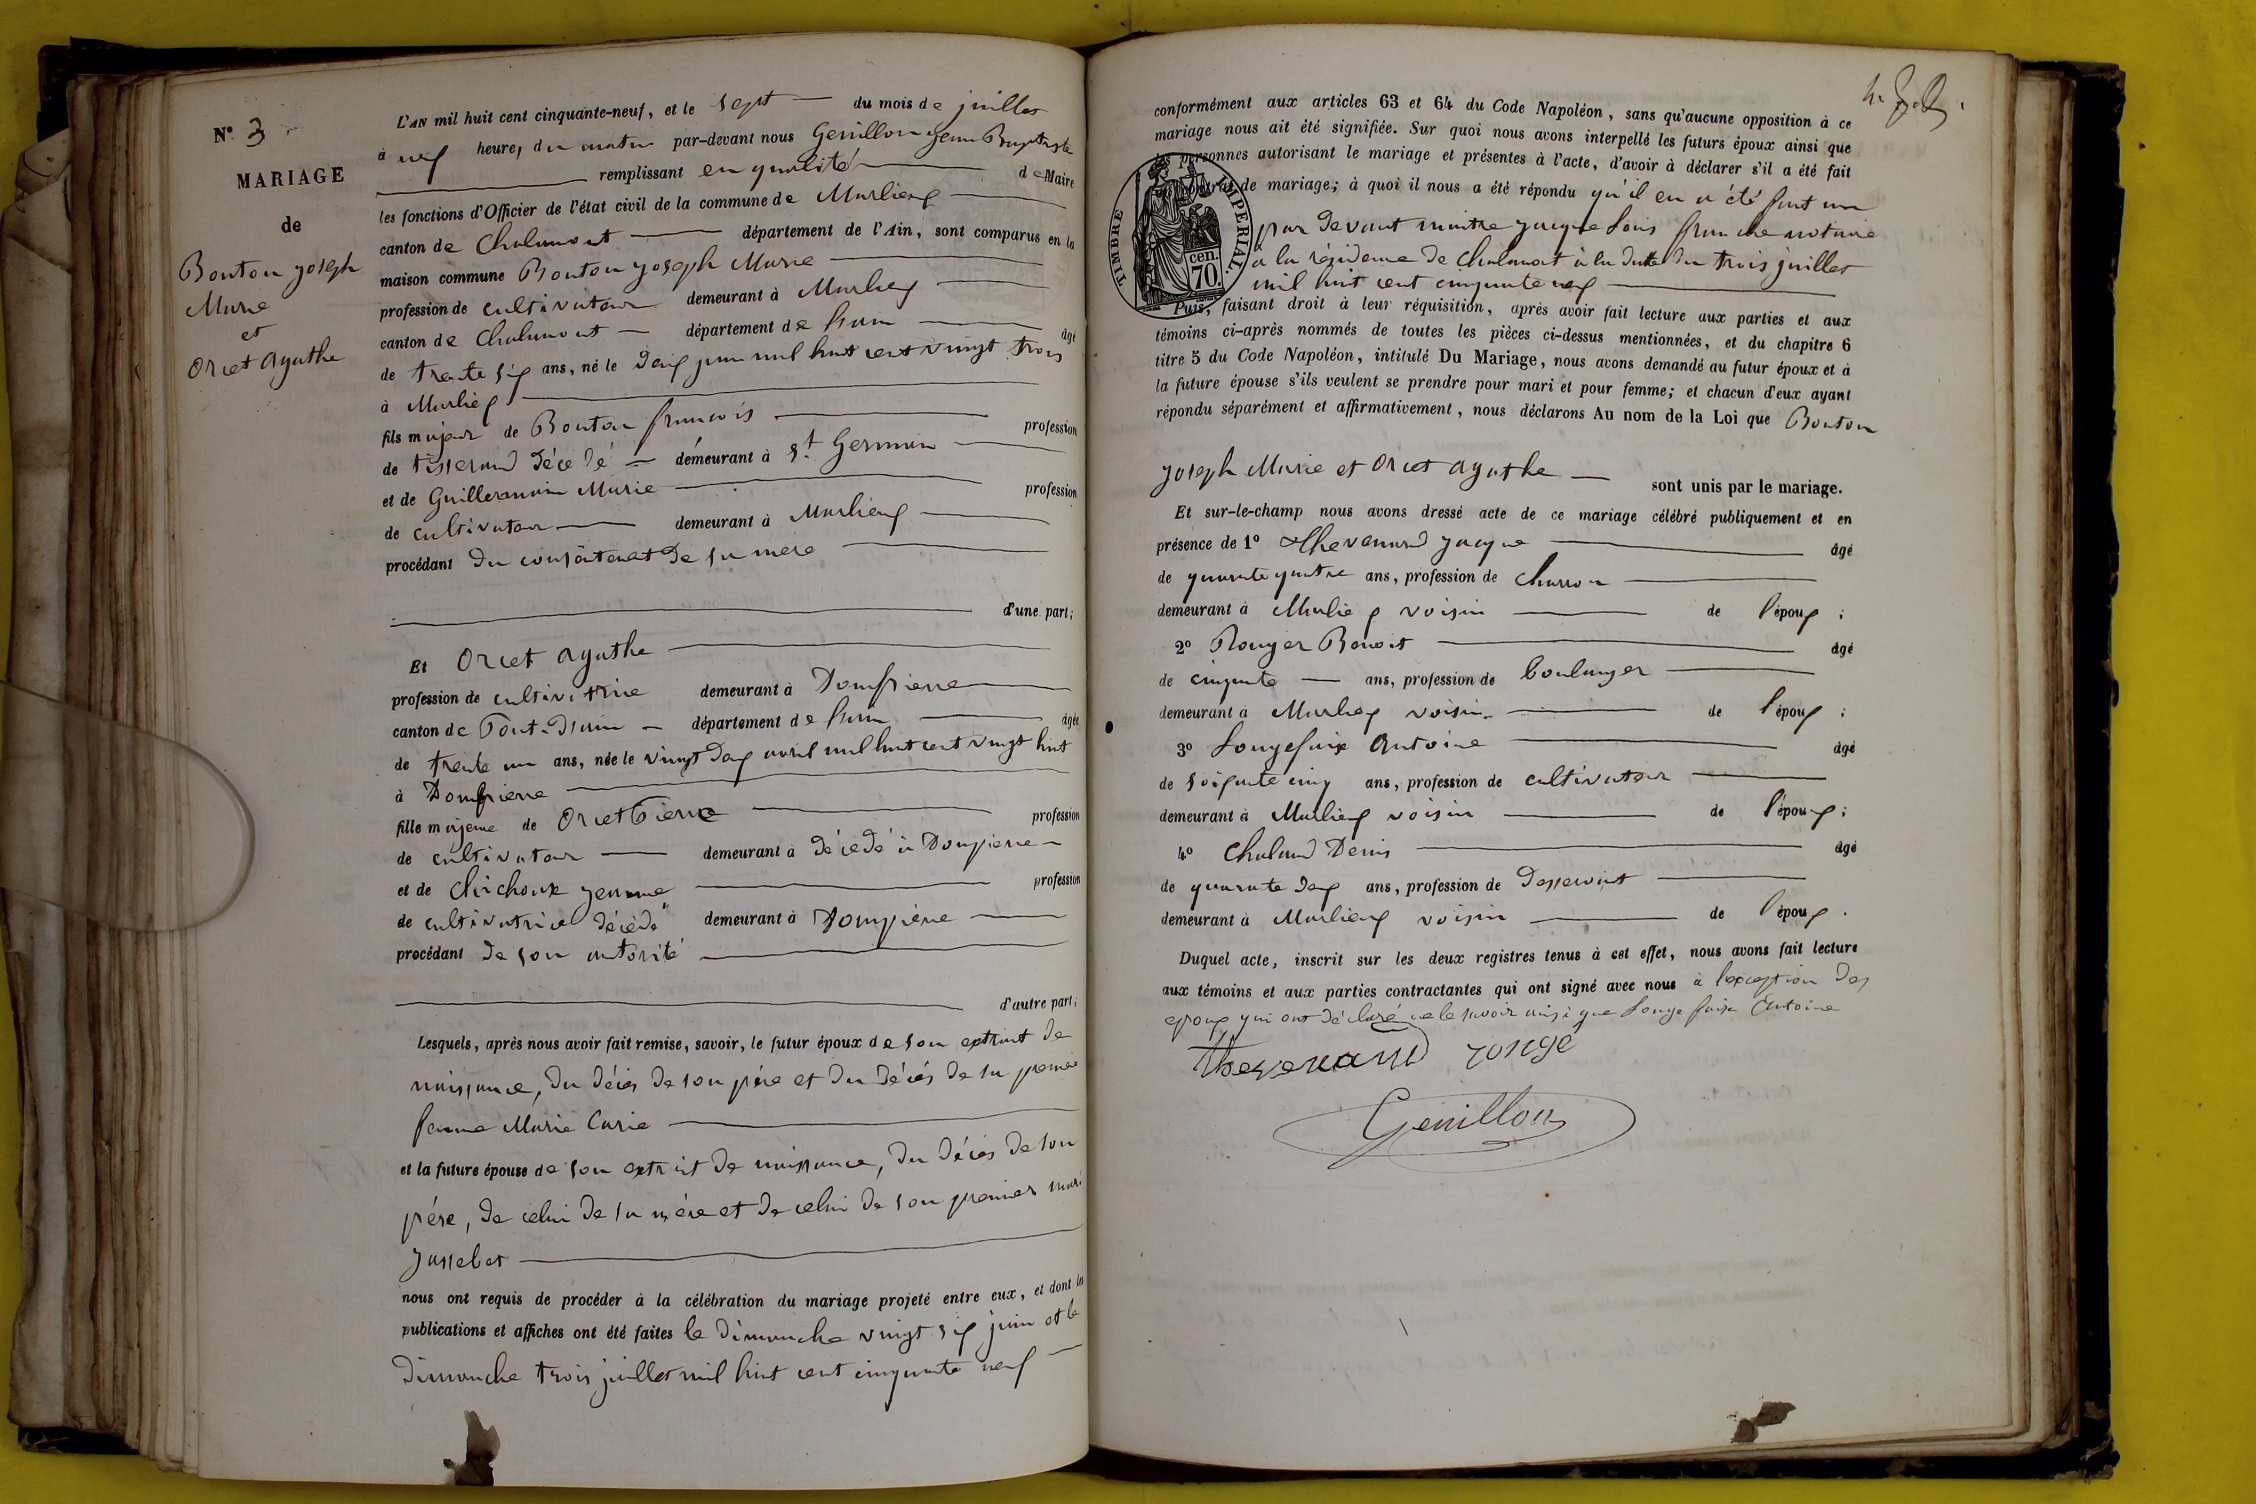 N° 3
MARIAGE
de
Bouton joseph
Marie
et
Orcet Agathe
L'AN mil huit cent cinquante-neuf, et le sept du mois de juillet
à neuf heures du matin par-devant nous Genillon jean Baptiste
remplissant en qualité de Maire
les fonctions d'Officier de l'état civil de la commune de Marlieux
canton de Chalamont département de l'Ain, sont comparus en la
maison commune Bouton joseph Marie
profession de cultivateur demeurant à Marlieux
canton de Chalamont département de l'ain âgé
de trente six ans, né le deux juin mil huit cent vingt trois
à Marlieux
fils majeur de Bouton francois profession
de tisserand décédé demeurant à St Germain
et de Guillermain Marie profession
de cultivateur demeurant à Marlieux
procédant du consentement de sa mere
d'une part;
Et Orcet agathe
profession de cultivatrice demeurant à Dompierre
canton de Pont-d'ain département de l'ain âgée
de trente un ans, née le vingt deux avril mil huit cent vingt huit
à Dompierre
fille majeure de Orcet Pierre profession
de cultivateur demeurant à décédé à Dompierre
et de Chichoux jeanne profession
de cultivatrice décédé demeurant à Dompierre
procédant de son autorité
d'autre part;
Lesquels, après nous avoir fait remise, savoir, le futur époux de son extrait de
naissance, du décés de son père et du décés de sa premiere
femme Marie Curie
et la future épouse de son extrait de naissance, du décés de son
père, de celui de sa mère et de celui de son premier mari
Josselet
nous ont requis de procéder à la célébration du mariage projeté entre eux, et dont les
publications et affiches ont été faites le dimanche vingt six juin et le
dimanche trois juillet mil huit cent cinquante neuf
conformément aux articles 63 et 64 du Code Napoléon, sans qu'aucune opposition à ce
mariage nous ait été signifiée. Sur quoi nous avons interpellé les futurs époux ainsi que
les personnes autorisant le mariage et présentes à l'acte, d'avoir à déclarer s'il a été fait
un contrat de mariage; à quoi il nous a été répondu qu'il en a été fait un
par devant maitre jacque Louis franche notaire
à la résidence de Chalamont à la date du trois juillet
mil huit cent cinquante neuf
TIMBRE IMPERIAL.
cen.
70.
Puis, faisant droit à leur réquisition, après avoir fait lecture aux parties et aux
témoins ci-après nommés de toutes les pièces ci-dessus mentionnées, et du chapitre 6
titre 5 du Code Napoléon, intitulé Du Mariage, nous avons demandé au futur époux et à
la future épouse s'ils veulent se prendre pour mari et pour femme; et chacun d'eux ayant
répondu séparément et affirmativement, nous déclarons Au nom de la Loi que Bouton
joseph Marie et Orcet agathe sont unis par le mariage.
Et sur-le-champ nous avons dressé acte de ce mariage célébré publiquement et en
présence de 1° Thevenard jacque âgé
de quarante quatre ans, profession de charron
demeurant à Marlieux voisin de l'époux;
2° Rouger Benoit âgé
de cinquante ans, profession de boulanger
demeurant à Marlieux voisin de l'époux;
3° Longefaix Antoine âgé
de soixante cinq ans, profession de cultivateur
demeurant à Marlieux voisin de l'époux;
4° Chaland Denis âgé
de quarante deux ans, profession de desservant
demeurant à Marlieux voisin de l'époux.
Duquel acte, inscrit sur les deux registres tenus à cet effet, nous avons fait lecture
aux témoins et aux parties contractantes qui ont signé avec nous à l'exception des
epoux qui ont déclaré ne le savoir ainsi que Longefaix Antoine
thevenard rongé
Genillon